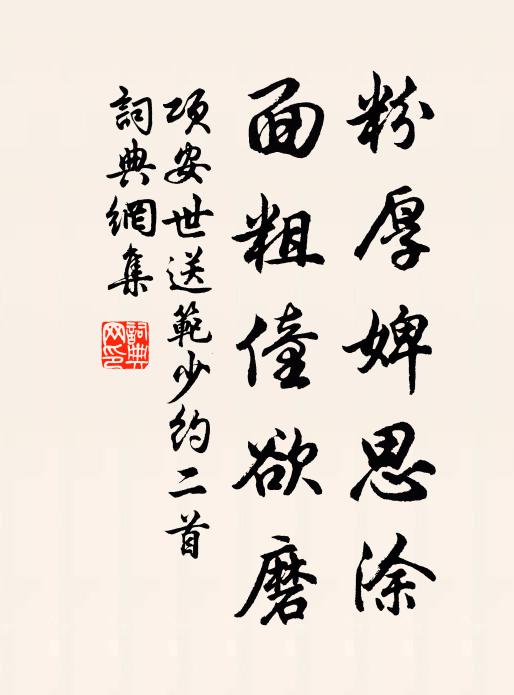 粉厚婢思涂
面粗僮欲磨
项安世送範少约二首
詞典網集
詞典网印